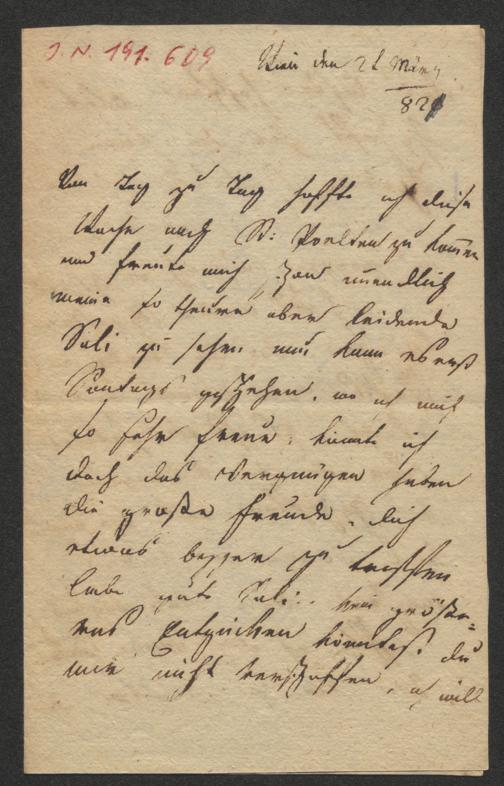 J. N. 191.609
Wien den 21 März
821
Von Tag zu Tag hoffte ich diese
Woche nach St: Poelten zu kom̄en
und freute mich schon unendlich
meine so theure aber leidende
Sali zu sehen nun kann es erst
Sontags geschehen, wo ich mich
so sehr freue, könnte ich
doch das Vergnügen haben
die große Freude, dich
etwas besser zu treffen
liebe gute Sali: kein größe=
res Entzücken könntest du
mir nicht verschaffen, ich will